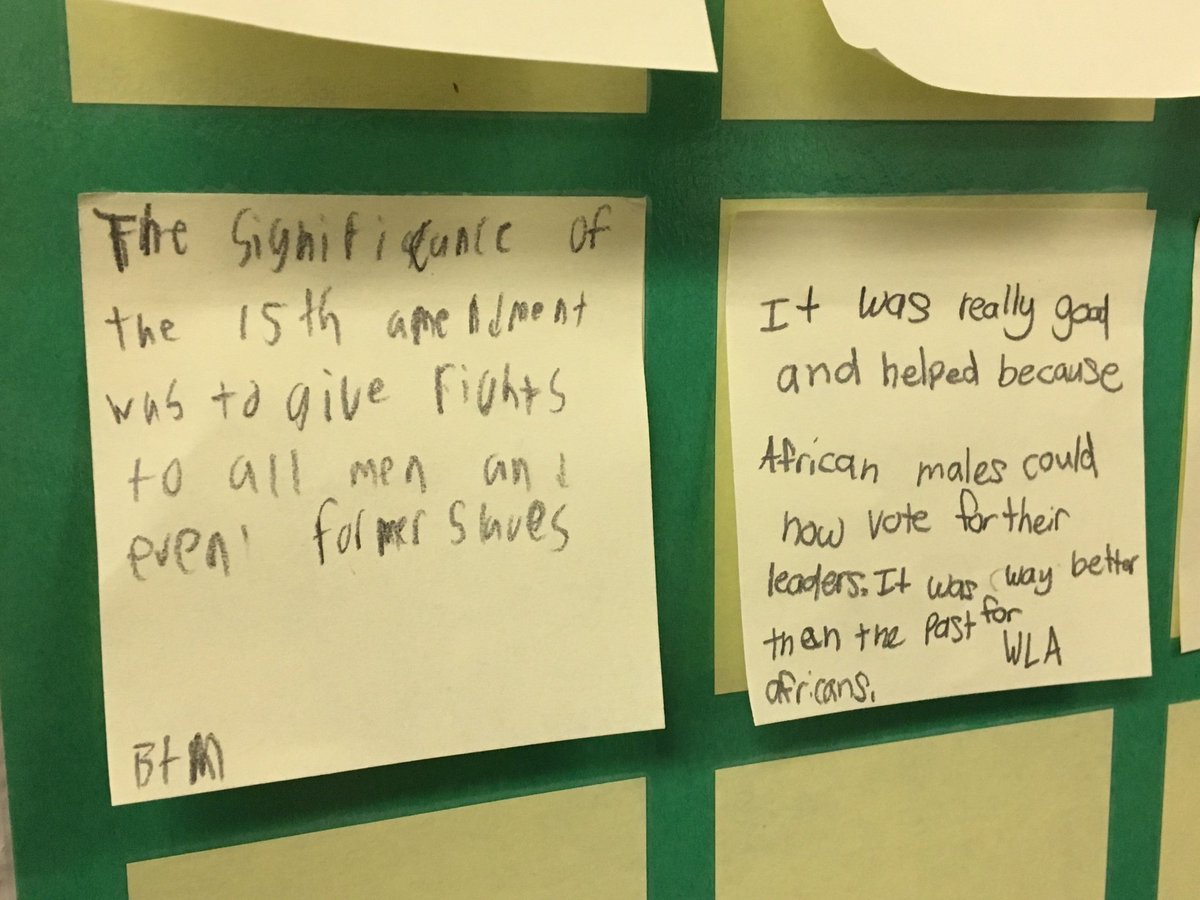 The significance of
the 15th amendment
was to give rights
to all men and
even former slaves
B+M
It was really good
and helped because
African males could
now vote for their
leaders. It was way better
then the past for
WLA
africans.